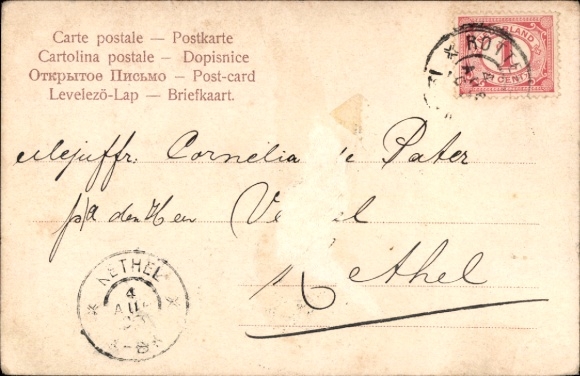 Carte postale — Postkarte
Cartolina postale — Dopisnice
Открытое Письмо — Post-card
Levelezö-Lap — Briefkaart.
1
CENT
Mejuffr. Cornelia de Pater
p/a den Heer
Kethel
KETHEL
4
AUG